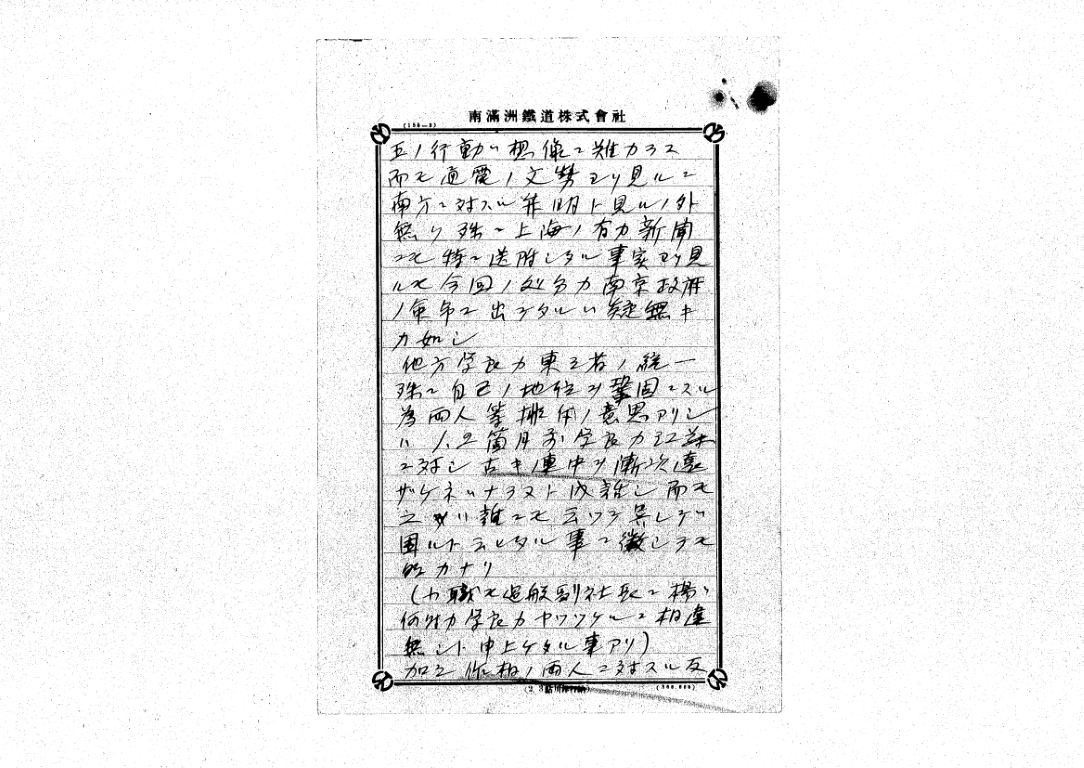 南滿洲鐵道株式會社
互ノ行動ハ想像ニ難カラス
而モ通電ノ文勢ヨリ見ルニ
南方ニ対スル弁明ト見ルノ外
無ク殊ニ上海ノ有力新聞
ニモ特ニ送附シタル事実ヨリ見
ルモ今回ノ処分カ南京政府
ノ使嗾ニ出テタルハ疑無キ
カ如シ
他方学良カ東三省ノ統一
殊ニ自己ノ地位ヲ鞏固ニスル
為四人等排斥ノ意思アリシ
ハ八、九箇月前学良カ江藤
ニ対シ古キ連中ヲ漸次遠
ザケネハナラヌト 而モ
之ハ誰ニモ云ツテ呉レテハ
困ルト云ヒタル事ニ徴シテモ
明カナリ
(小職モ過般副社長ニ楊ハ
何時カ学良カヤツツケルニ相違
無シト申上ケタル事アリ)
加之作相ノ両人ニ対スル反